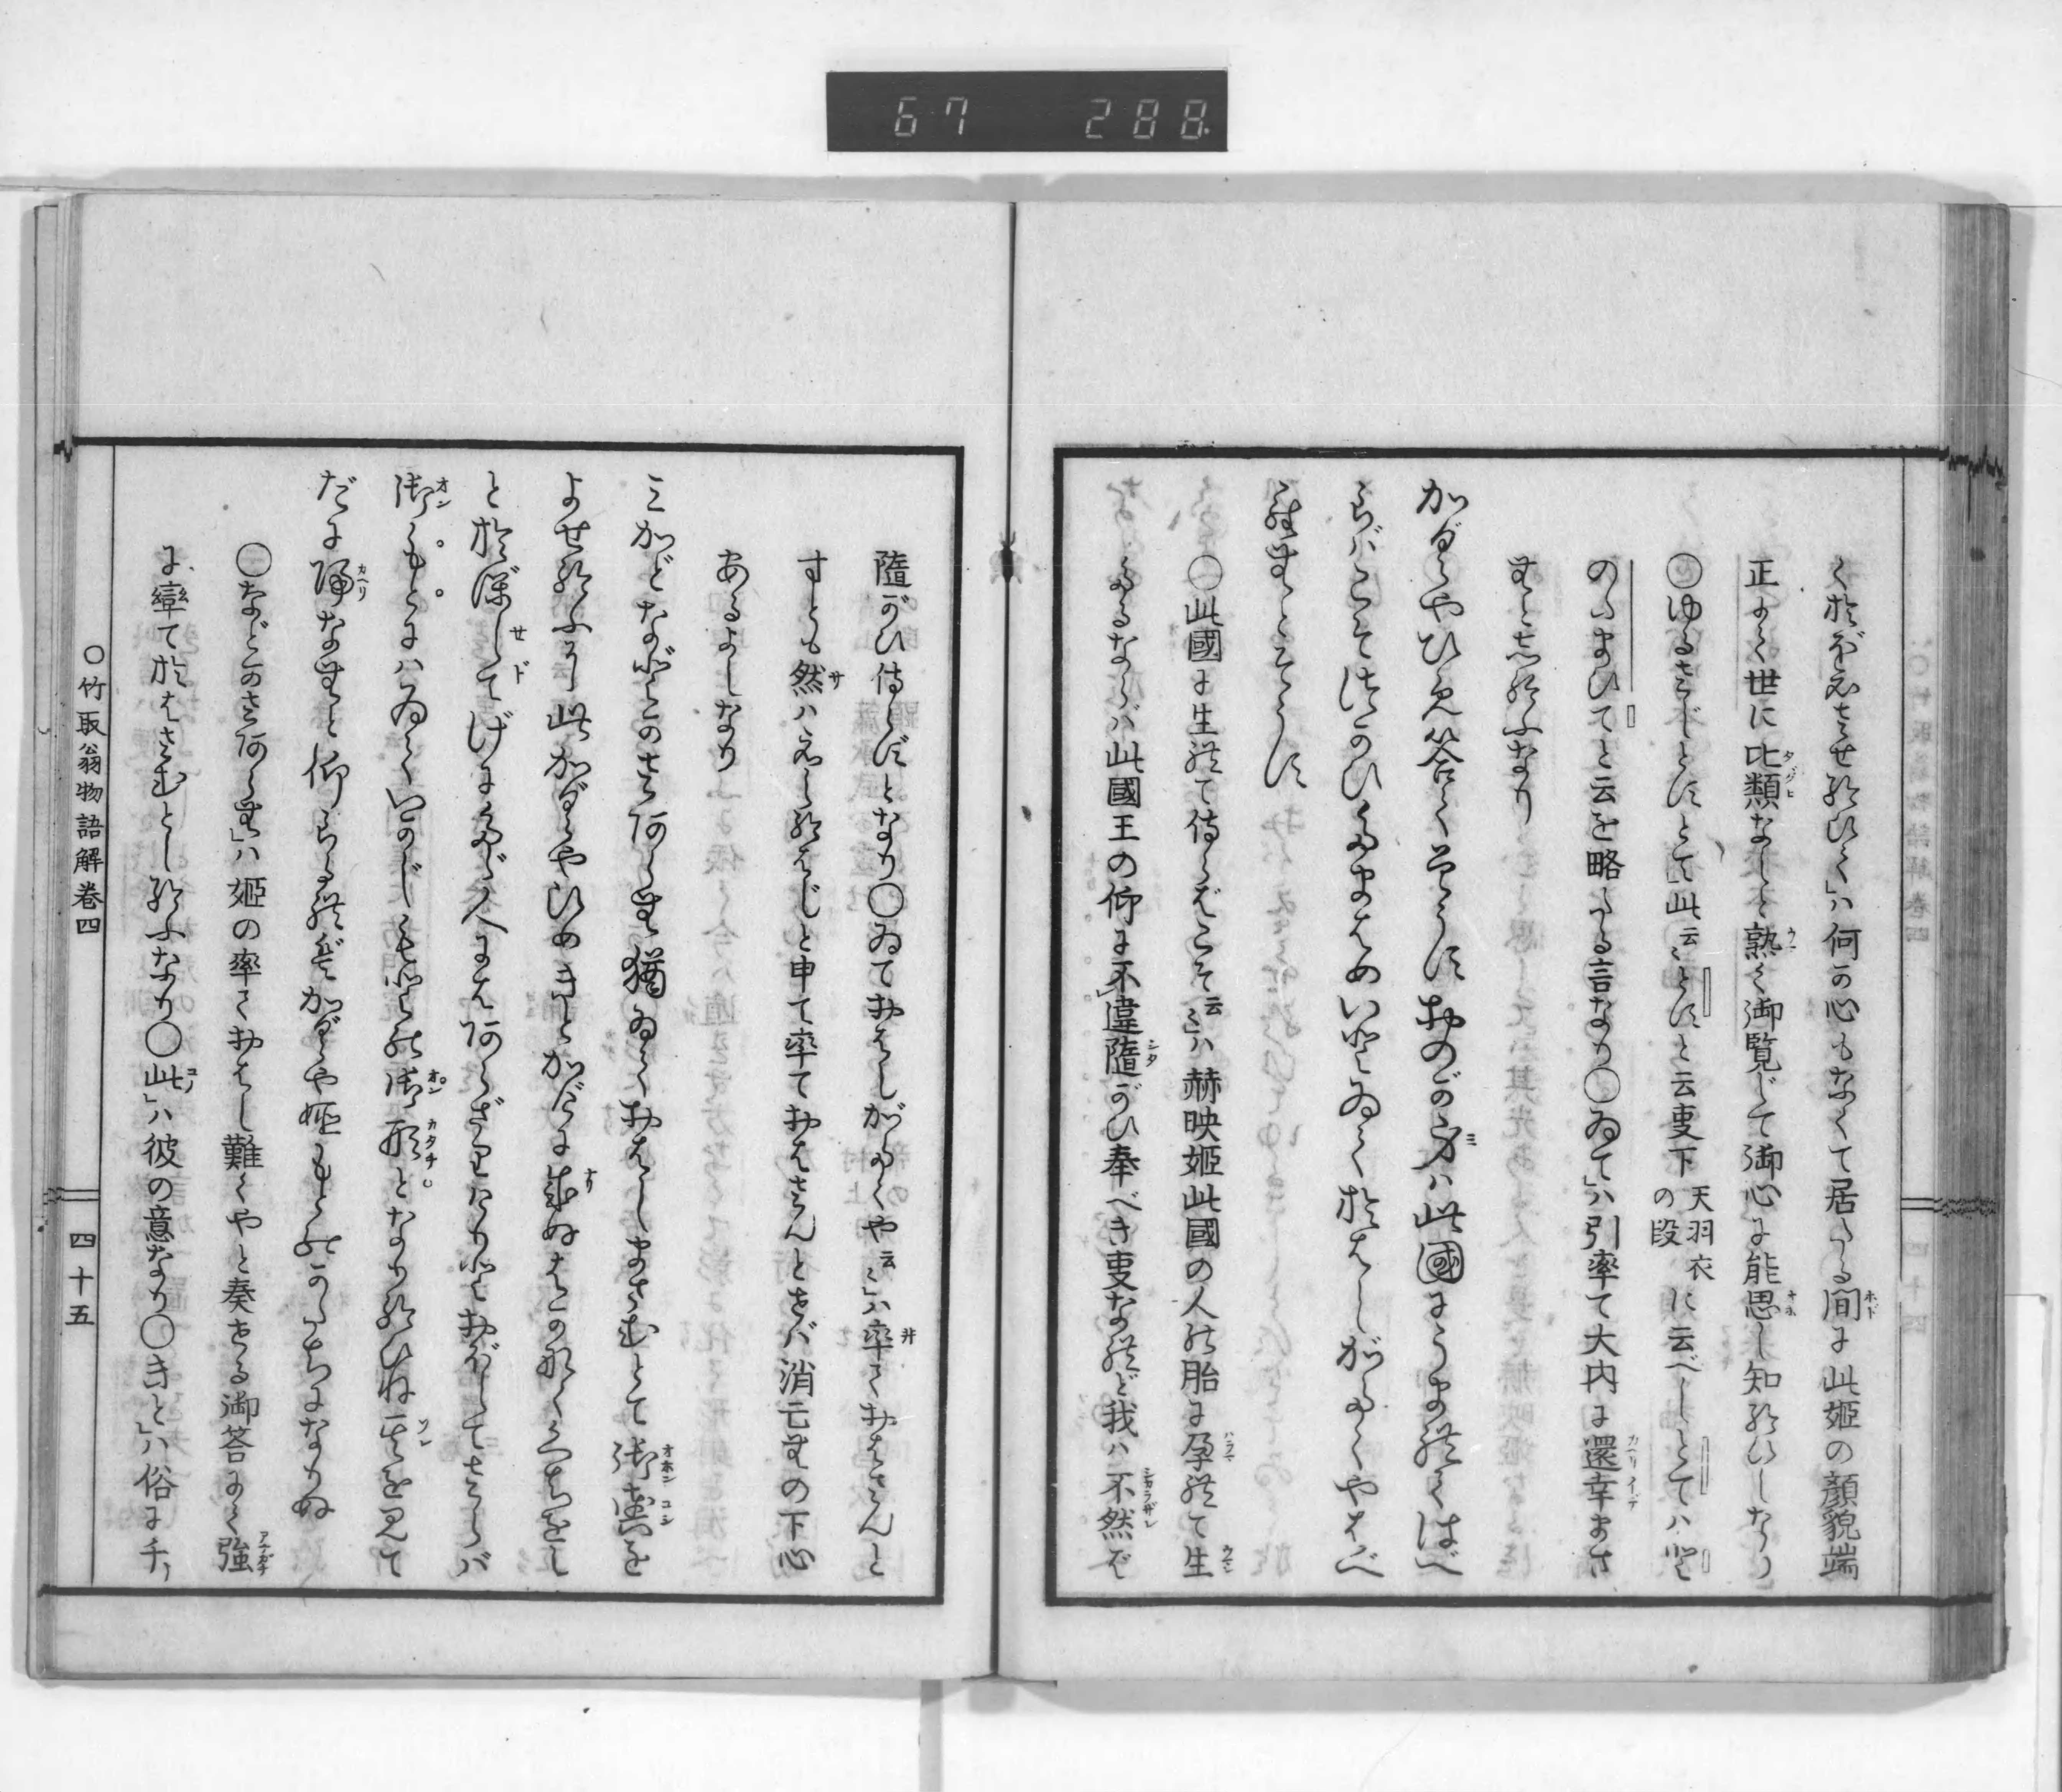 67 288
くおぼえさせ給ひて」ハ何の心もなくて居たる間に此姫の顔貌端
正よく世に比類なしと熟く御覧じて御心に能思し知給ひしなり
〇ゆるさじとすとて」此云〻とすと云叓下天羽衣の段に云べしとてハと
のたまひてと云を略たる言なり〇ゐて」ハ引率て大内に還幸まさ
むとし給ふなり
かぐやひめ答へてそうすおのが身ハ此國にうまれてはべ
らバこそつかひたまはめいとゐておはしがたくやはべ
らむとそうす
〇此國に生れて侍らばこそ云〻」ハ赫映姫此國の人の胎に孕れて生
たるならバ此國王の仰に不違隨がひ奉べき叓なれど我ハ不然ば
隨がひ侍らずとなり〇ゐておはしがたくや云〻」ハ率ておはさんと
すとも然ハえし給はじと申て率ておはさんとせバ消元むの下心
あるよしなり
ミかどなどかさあらむ猶ゐておはしまさむとて御輿を
よせ給ふに此かぐやひめきとかげに成ぬはかなくくちをし
とおぼしてげにたゞ人にはあらざりけりとおぼしてさらバ
御ともにハゐていかじもとの御形となり給ひねそれを見て
だに帰なむと仰らるれバかぐや姫もとのかたちになりぬ
〇などかさあらむ」ハ姫の率ておはし難くやと奏せる御答にて強
に率ておはさむとし給ふなり〇此」ハ彼の意なり〇きと」ハ俗にチヤ
〇竹取翁物語解卷四
四十五